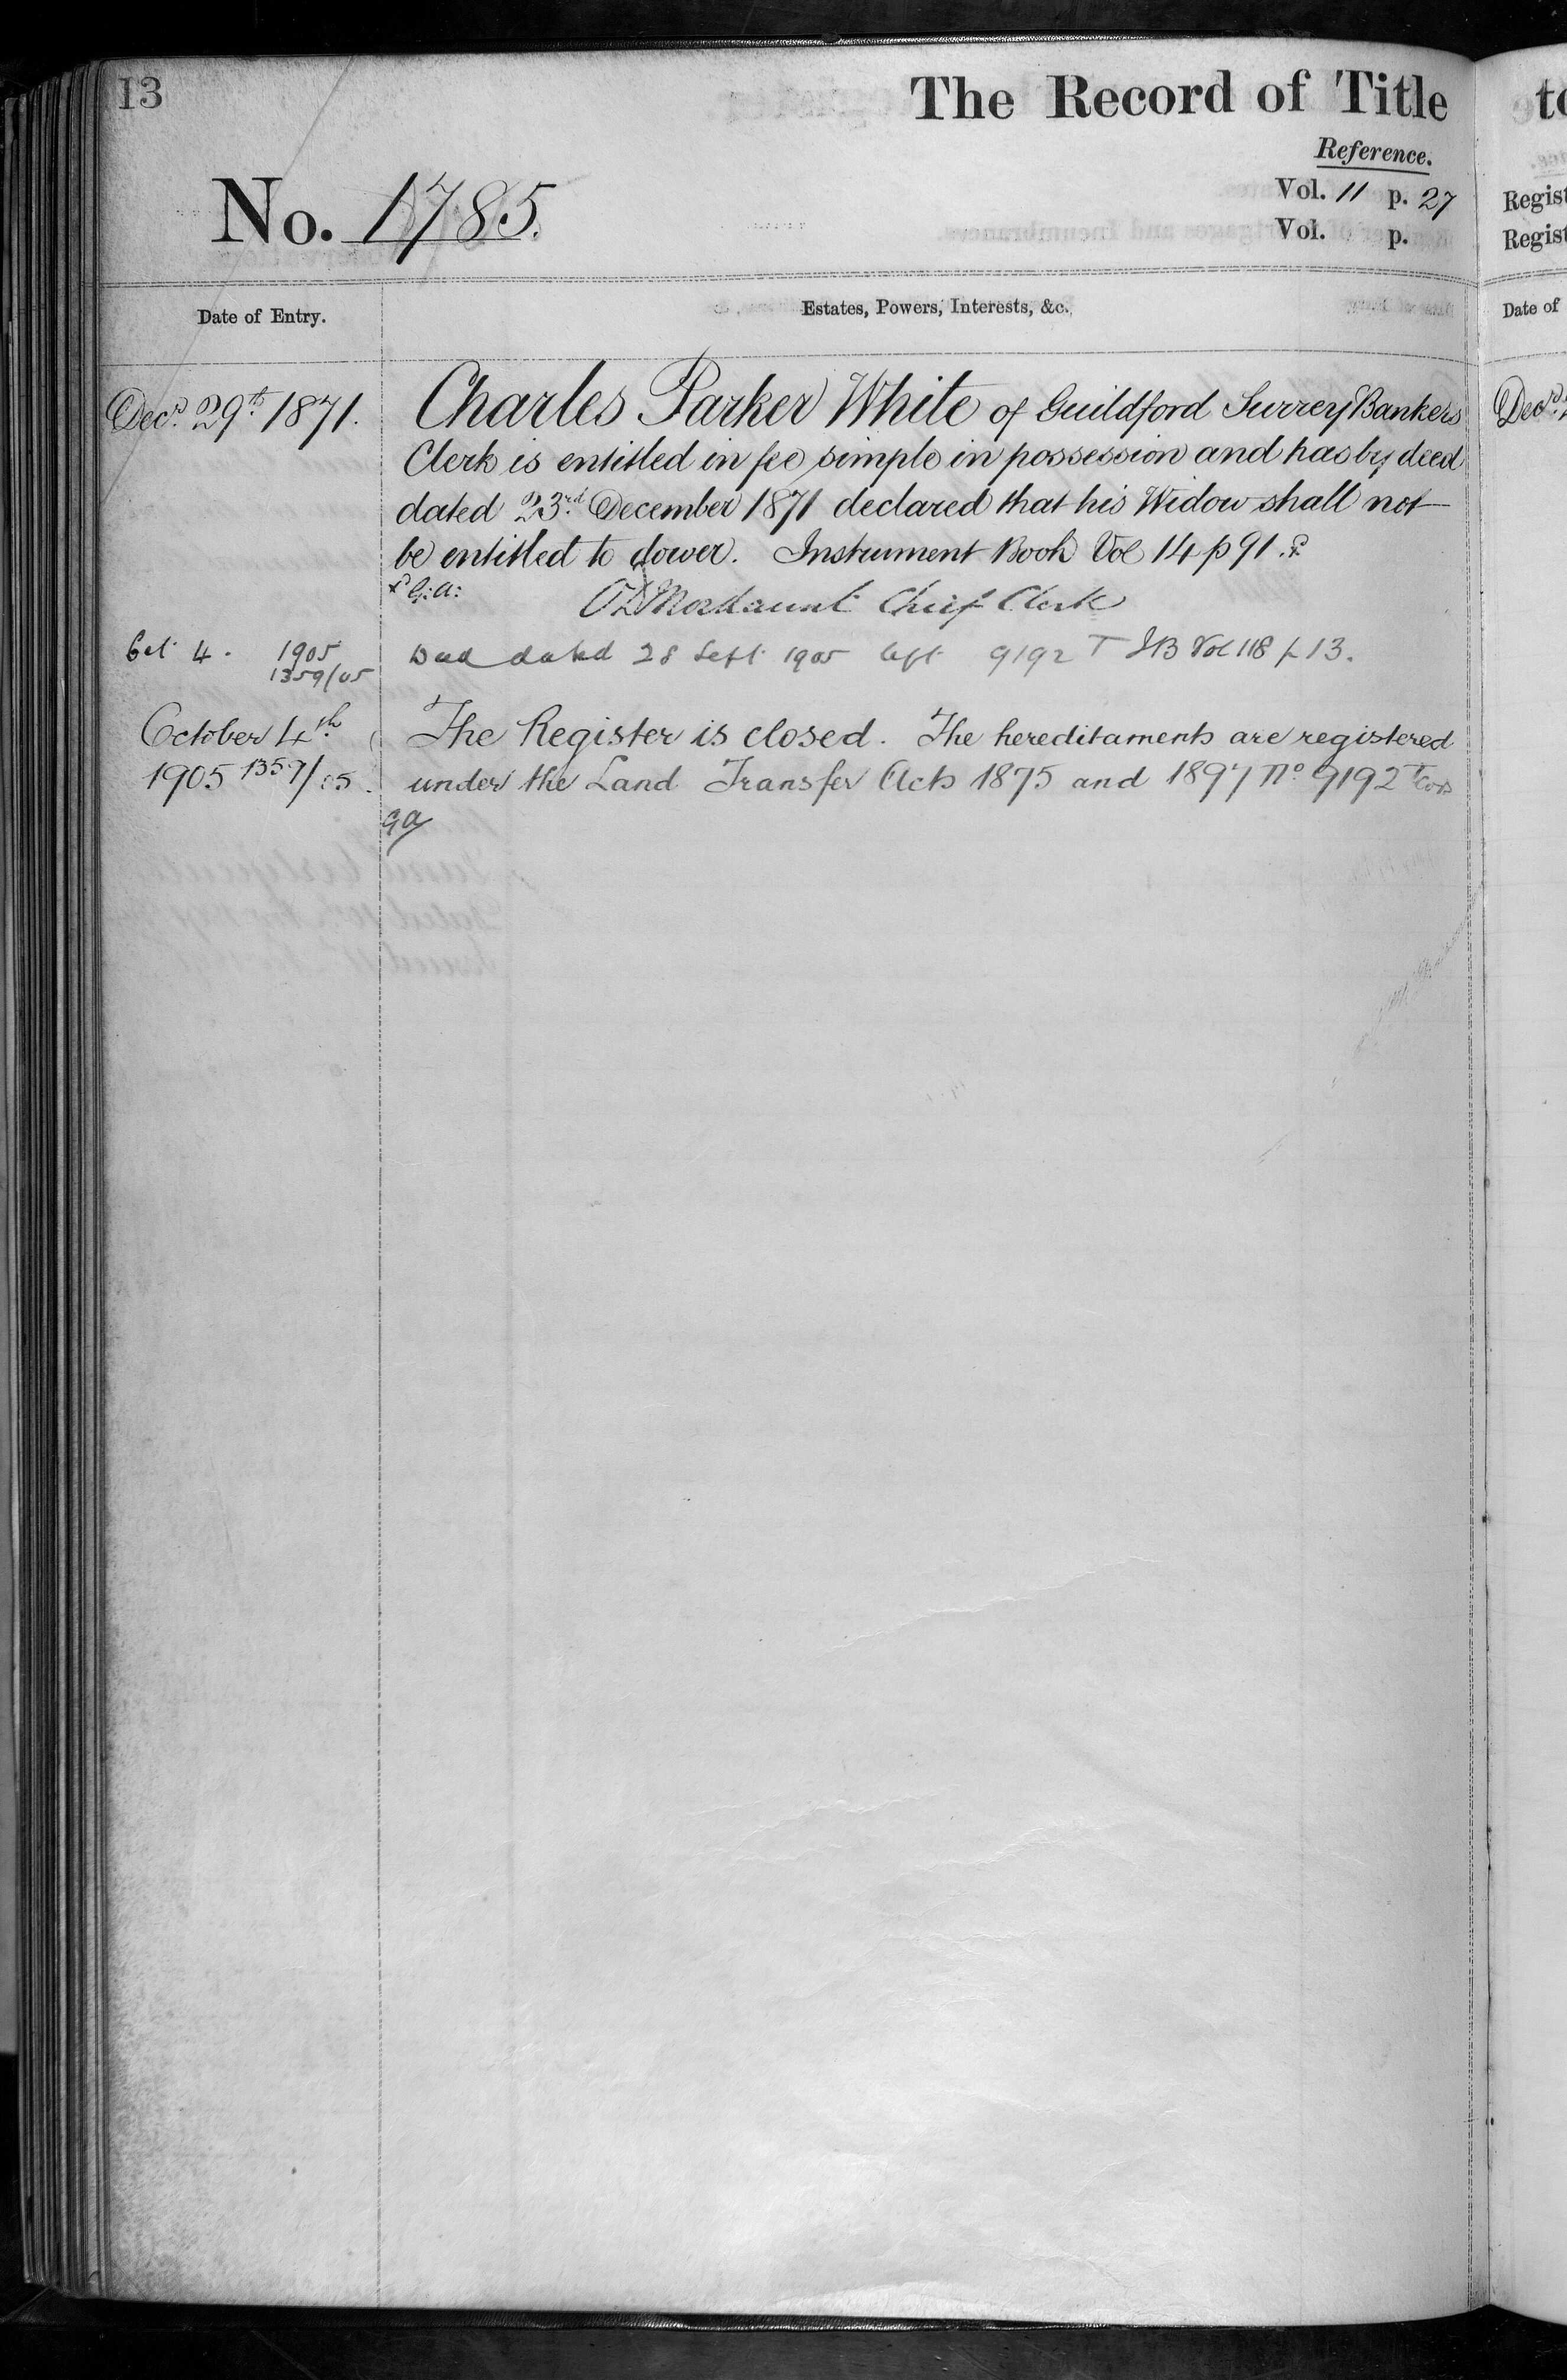 13
The Record of Title
Reference.
No. 1785.
Vol. 11 p. 27
Vol. p.
Date of Entry.
Estates, Powers, Interests, &c.
Decr. 29th 1871.
Charles Parker White of Guildford Surrey Bankers
Clerk is entitled in fee simple in possession and has by deed
dated 23rd December 1871 declared that his Widow shall not
be entitled to dower. Instrument Book Vol 14 p 91.
G: A:
Mordaunt Chief Clerk
Oct 4. 1905
1359/05
Deed dated 28 Sept 1905 left 9192 T IB Vol 118 p 13.
October 4th
1905 1359/05.
The Register is closed. The hereditaments are registered
under the Land Transfer Acts 1875 and 1897 No 9192
GA
to
Regist
Regist
Date of
Decr.